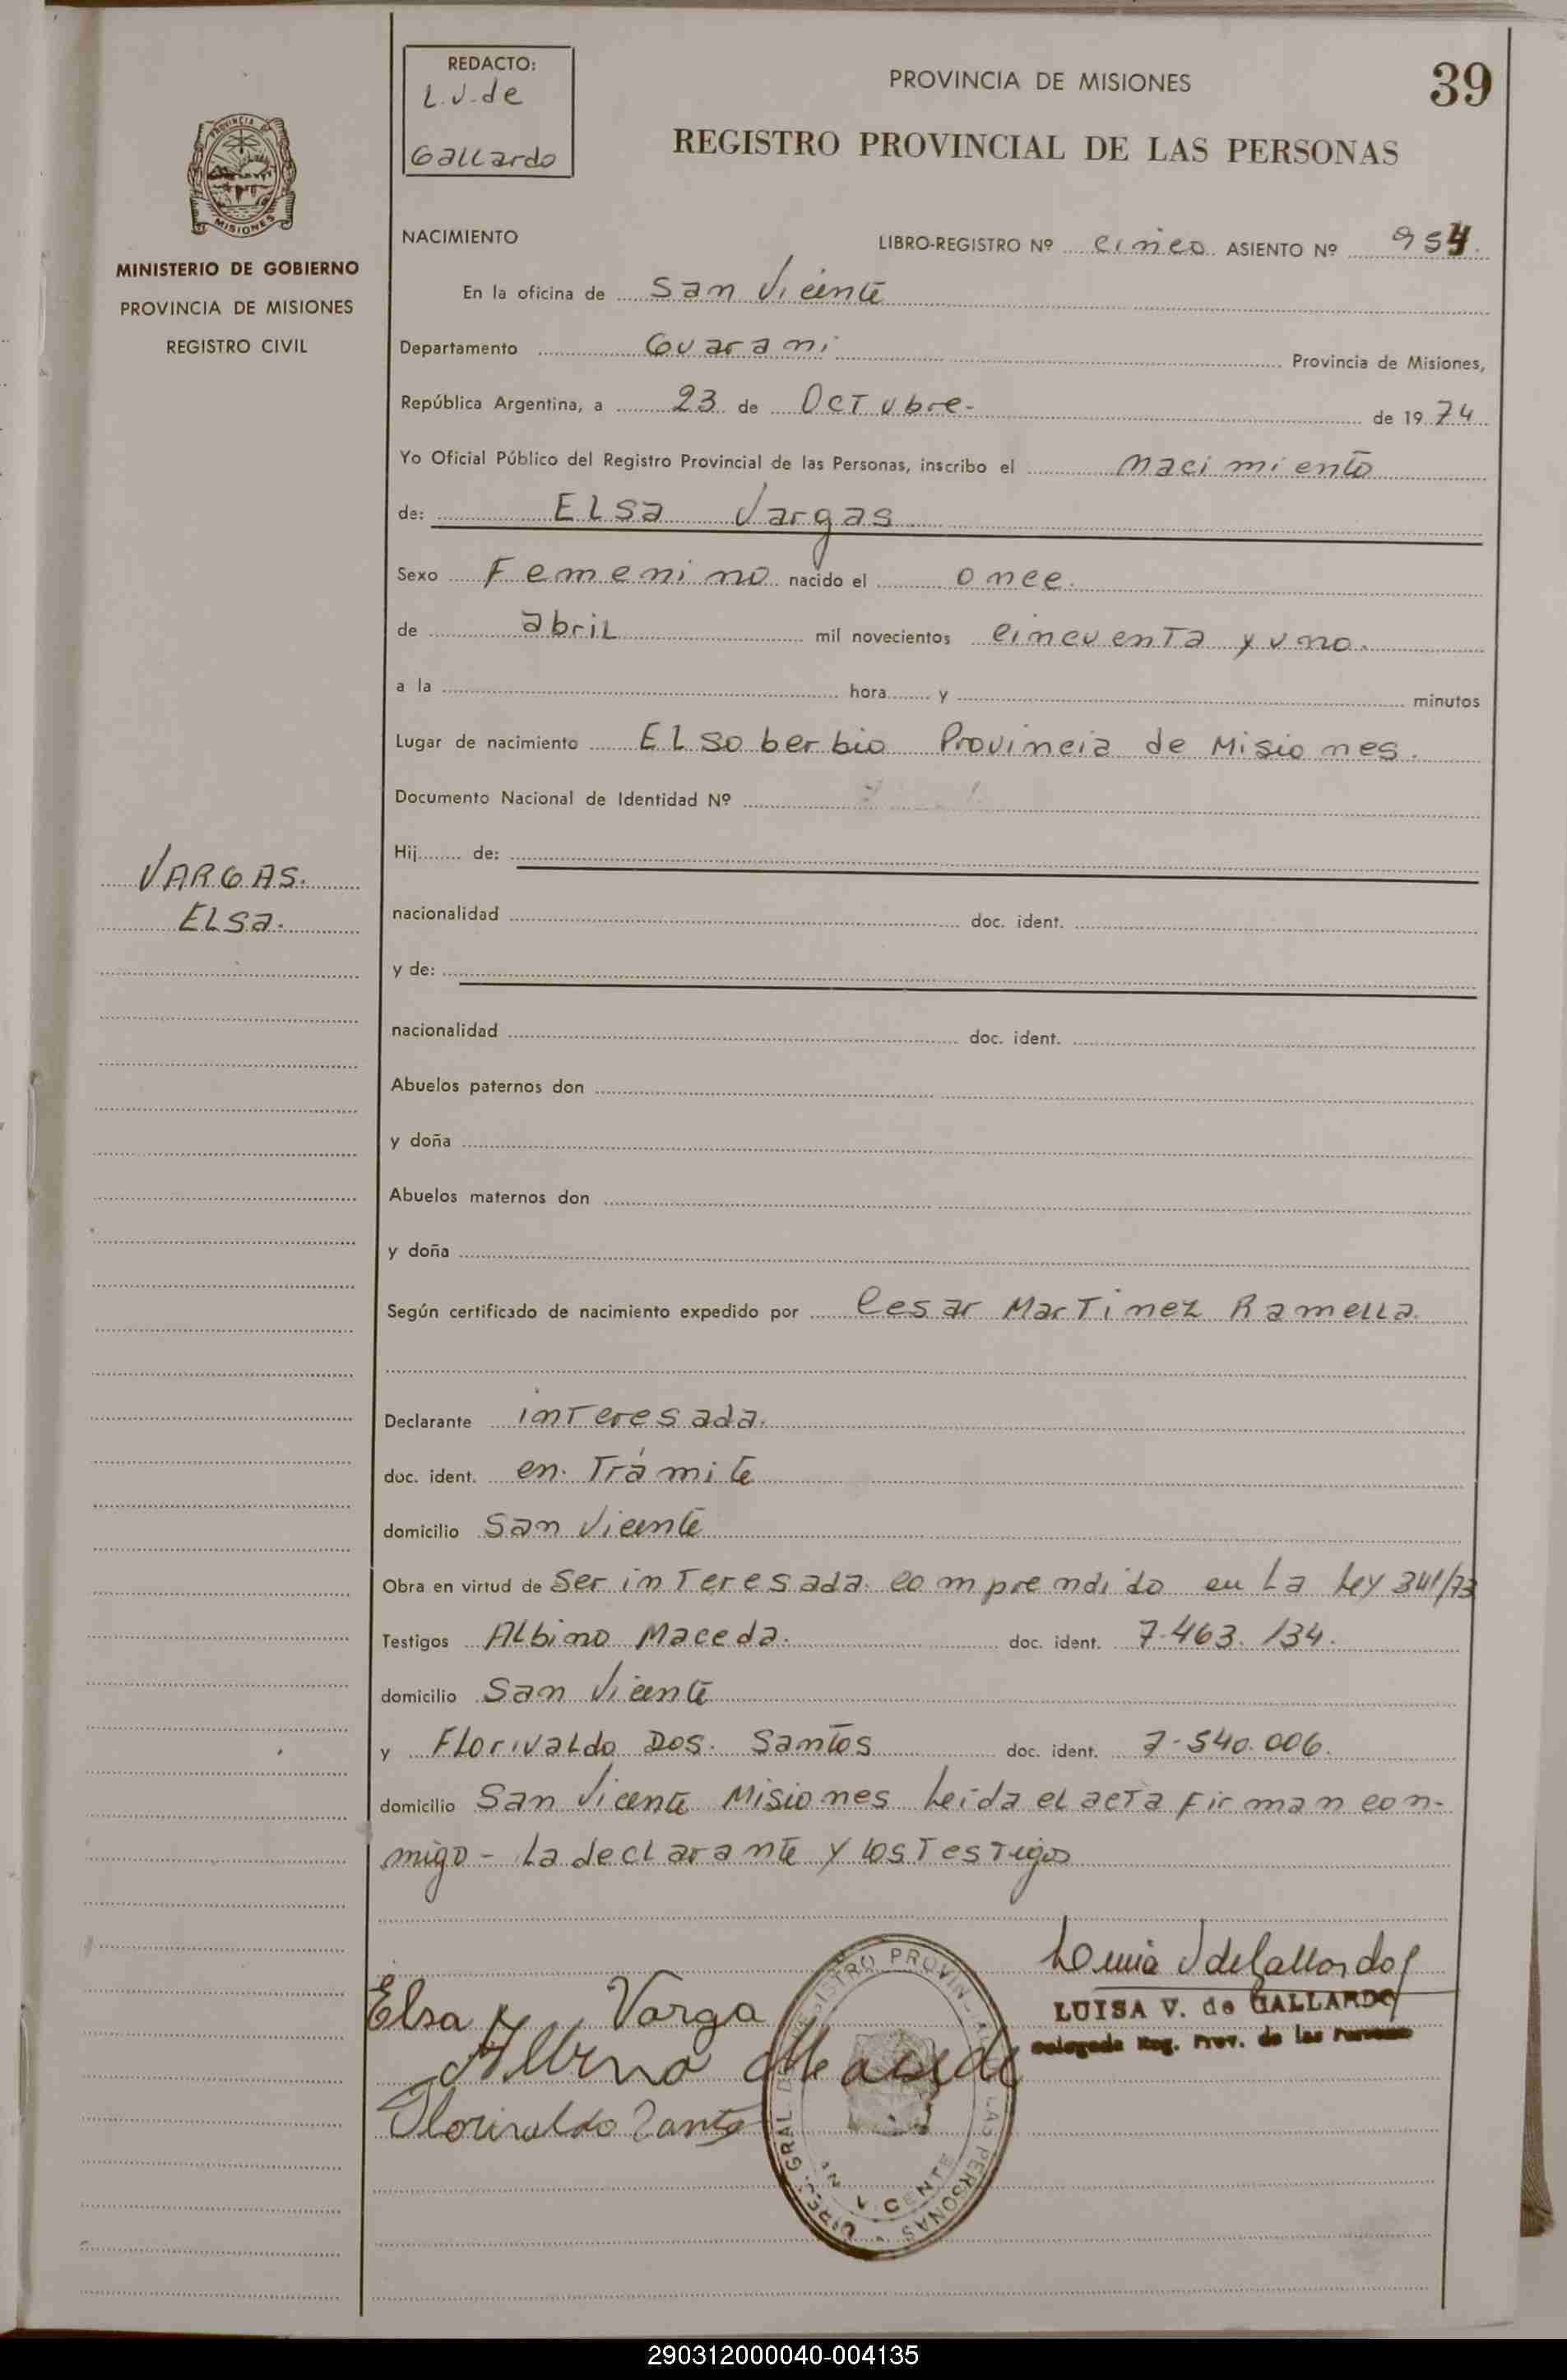 39
REDACTO:
L.V. de
Gallardo
PROVINCIA DE MISIONES
REGISTRO PROVINCIAL DE LAS PERSONAS
PROVINCIA
MISIONES
MINISTERIO DE GOBIERNO
PROVINCIA DE MISIONES
REGISTRO CIVIL
NACIMIENTO LIBRO-REGISTRO Nº cinco ASIENTO Nº 954.
En la oficina de San Vicente
Departamento Guarani Provincia de Misiones,
República Argentina, a 23 de Octubre- de 1974
Yo Oficial Público del Registro Provincial de las Personas, inscribo el nacimiento
de: Elsa Vargas
Sexo Femenino nacido el once.
de abril mil novecientos cincuenta y uno.
a la hora y minutos
Lugar de nacimiento El soberbio Provincia de Misiones.
Documento Nacional de Identidad Nº
Hij de:
VARGAS.
ELSa.
nacionalidad doc. ident.
y de:
nacionalidad doc. ident.
Abuelos paternos don
y doña
Abuelos maternos don
y doña
Según certificado de nacimiento expedido por Cesar Martinez Ramella.
Declarante interesada.
doc. ident. en Trámite
domicilio San Vicente
Obra en virtud de Ser interesada comprendido en La Ley 341/73
Testigos Albino Maceda. doc. ident. 7.463.134.
domicilio San Vicente
y Florivaldo Dos. Santos doc. ident. 7.540.006.
domicilio San Vicente Misiones Leida el acta firman con-
migo - La declarante y los Testigos
Elsa Varga
LUISA V. de GALLARDO
Delegada Reg. Prov. de las Personas
Albino Masede
Florivaldo Santo
290312000040-004135